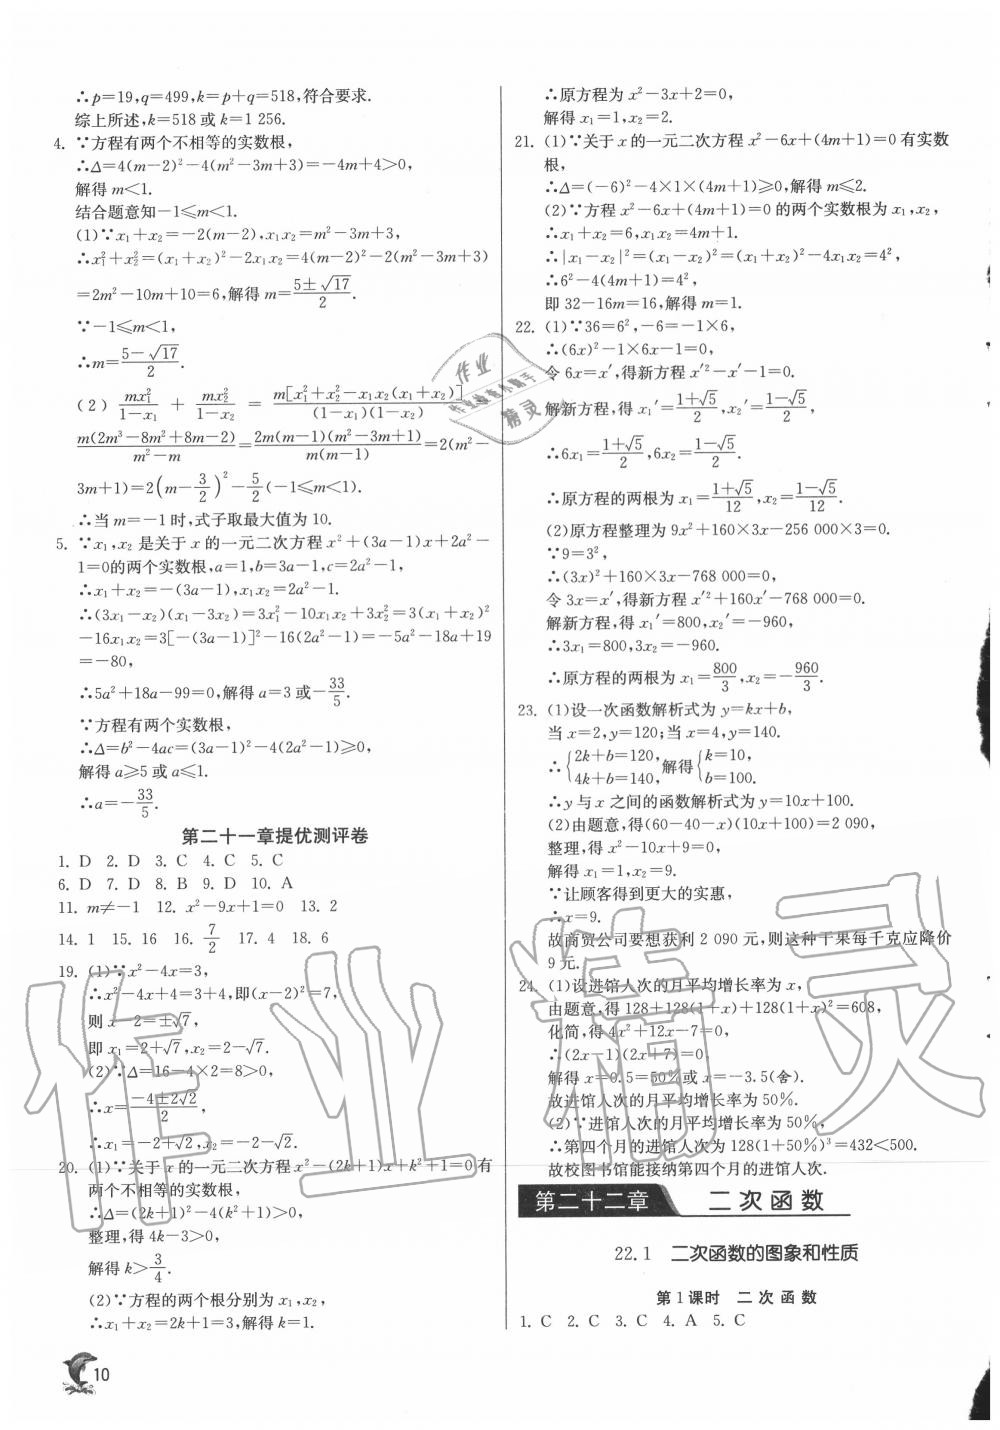 ∴p=19,q=499,k=p+q=518,符合要求.
综上所述,k=518 或 k=1 256.
4. ∵方程有两个不相等的实数根,
∴Δ=4(m−2)²−4(m²−3m+3)=−4m+4>0,
解得 m<1.
结合题意知−1≤m<1.
(1)∵x₁+x₂=−2(m−2),x₁x₂=m²−3m+3,
∴x₁²+x₂²=(x₁+x₂)²−2x₁x₂=4(m−2)²−2(m²−3m+3)
=2m²−10m+10=6,解得 m=(5±√17)/2.
∵−1≤m<1,
∴m=(5−√17)/2.
(2) mx₁²/(1−x₁) + mx₂²/(1−x₂) = m[x₁²+x₂²−x₁x₂(x₁+x₂)]/((1−x₁)(1−x₂)) =
m(2m³−8m²+8m−2)/(m²−m)=2m(m−1)(m²−3m+1)/(m(m−1))=2(m²−
3m+1)=2(m−3/2)²−5/2(−1≤m<1).
∴当 m=−1 时,式子取最大值为 10.
5. ∵x₁,x₂ 是关于 x 的一元二次方程 x²+(3a−1)x+2a²−
1=0的两个实数根,a=1,b=3a−1,c=2a²−1,
∴x₁+x₂=−(3a−1),x₁x₂=2a²−1.
∴(3x₁−x₂)(x₁−3x₂)=3x₁²−10x₁x₂+3x₂²=3(x₁+x₂)²
−16x₁x₂=3[−(3a−1)]²−16(2a²−1)=−5a²−18a+19
=−80,
∴5a²+18a−99=0,解得 a=3 或−33/5.
∵方程有两个实数根,
∴Δ=b²−4ac=(3a−1)²−4(2a²−1)≥0,
解得 a≥5 或 a≤1.
∴a=−33/5.
第二十一章提优测评卷
1. D 2. D 3. C 4. C 5. C
6. D 7. D 8. B 9. D 10. A
11. m≠−1 12. x²−9x+1=0 13. 2
14. 1 15. 16 16. 7/2 17. 4 18. 6
19. (1)∵x²−4x=3,
∴x²−4x+4=3+4,即(x−2)²=7,
则 x−2=±√7,
即 x₁=2+√7,x₂=2−√7.
(2)∵Δ=16−4×2=8>0,
∴x=(−4±2√2)/2,
∴x₁=−2+√2,x₂=−2−√2.
20. (1)∵关于 x 的一元二次方程 x²−(2k+1)x+k²+1=0 有
两个不相等的实数根,
∴Δ=(2k+1)²−4(k²+1)>0,
整理,得 4k−3>0,
解得 k>3/4.
(2)∵方程的两个根分别为 x₁,x₂,
∴x₁+x₂=2k+1=3,解得 k=1.
10
∴原方程为 x²−3x+2=0,
解得 x₁=1,x₂=2.
21. (1)∵关于 x 的一元二次方程 x²−6x+(4m+1)=0 有实数
根,
∴Δ=(−6)²−4×1×(4m+1)≥0,解得 m≤2.
(2)∵方程 x²−6x+(4m+1)=0 的两个实数根为 x₁,x₂,
∴x₁+x₂=6,x₁x₂=4m+1.
∴|x₁−x₂|²=(x₁−x₂)²=(x₁+x₂)²−4x₁x₂=4²,
∴6²−4(4m+1)=4²,
即 32−16m=16,解得 m=1.
22. (1)∵36=6²,−6=−1×6,
∴(6x)²−1×6x−1=0,
令 6x=x′,得新方程 x′²−x′−1=0.
解新方程,得 x₁′=(1+√5)/2,x₂′=(1−√5)/2,
∴6x₁=(1+√5)/2,6x₂=(1−√5)/2.
∴原方程的两根为 x₁=(1+√5)/12,x₂=(1−√5)/12.
(2)原方程整理为 9x²+160×3x−256 000×3=0.
∵9=3²,
∴(3x)²+160×3x−768 000=0.
令 3x=x′,得新方程 x′²+160x′−768 000=0.
解新方程,得 x₁′=800,x₂′=−960,
∴3x₁=800,3x₂=−960.
∴原方程的两根为 x₁=800/3,x₂=−960/3.
23. (1)设一次函数解析式为 y=kx+b,
当 x=2,y=120;当 x=4,y=140.
∴{2k+b=120, 4k+b=140, 解得{k=10, b=100.
∴y 与 x 之间的函数解析式为 y=10x+100.
(2)由题意,得(60−40−x)(10x+100)=2 090,
整理,得 x²−10x+9=0.
解得 x₁=1,x₂=9.
∵让顾客得到更大的实惠,
∴x=9.
故商贸公司要想获利 2 090 元,则这种干果每千克应降价
9 元.
24. (1)设进馆人次的月平均增长率为 x,
由题意,得 128+128(1+x)+128(1+x)²=608,
化简,得 4x²+12x−7=0,
∴(2x−1)(2x+7)=0,
解得 x=0.5=50%或 x=−3.5(舍).
故进馆人次的月平均增长率为 50%.
(2)∵进馆人次的月平均增长率为 50%,
∴第四个月的进馆人次为 128(1+50%)³=432<500.
故校图书馆能接纳第四个月的进馆人次.
第二十二章 二次函数
22.1 二次函数的图象和性质
第1课时 二次函数
1. C 2. C 3. C 4. A 5. C
作业精灵